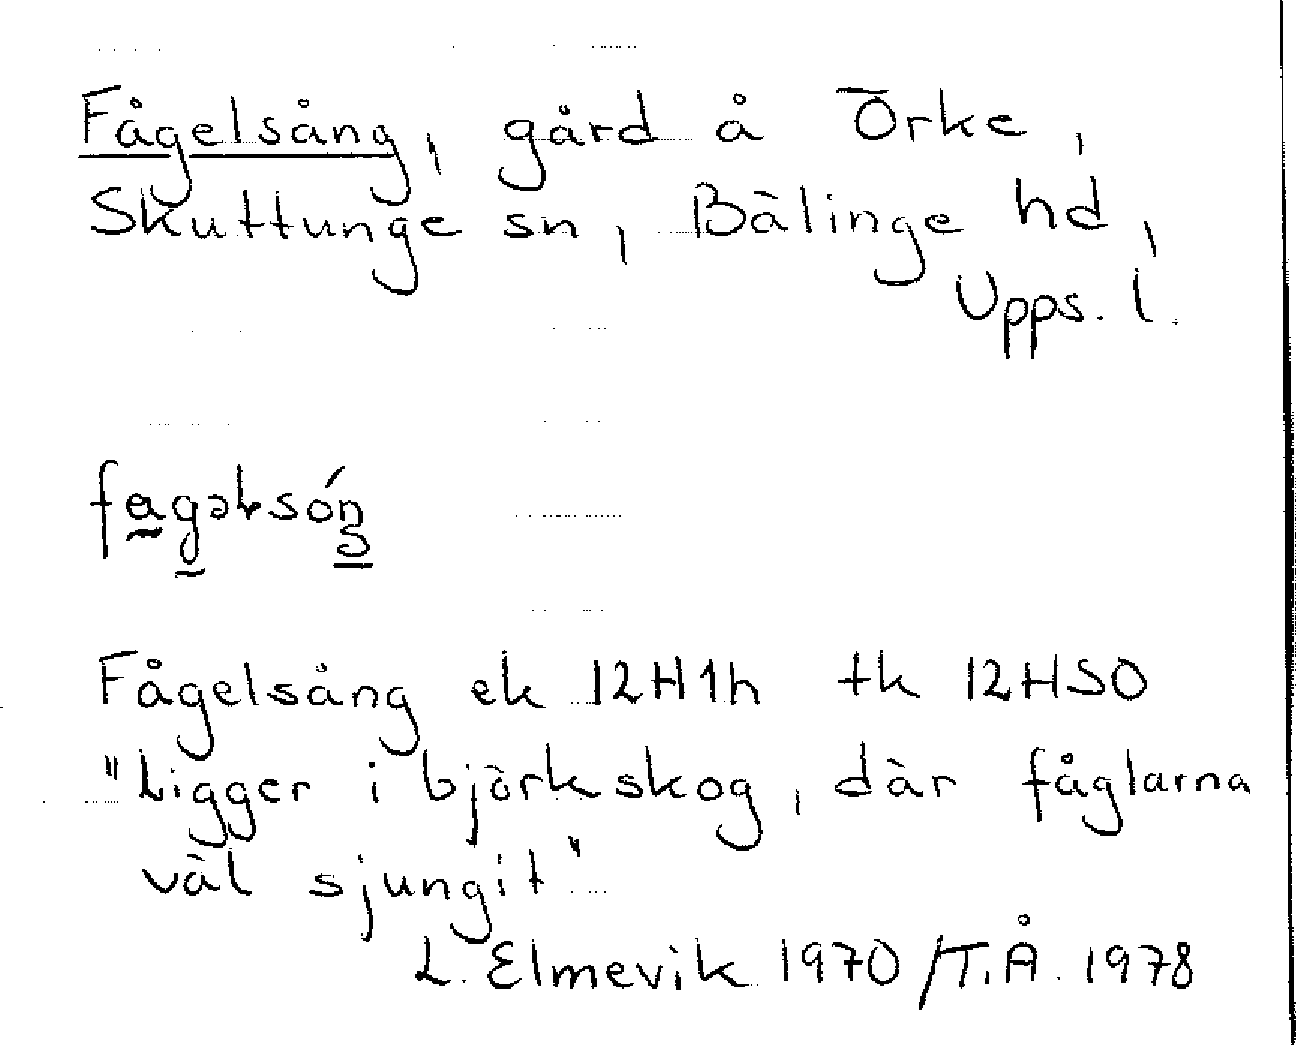 Fågelsång, gård å Örke,
Skuttunge sn, Bälinge hd,
Upps. l.
fa̰g̱əɫsóŋ
Fågelsång ek 12H1h tk 12HSO
"Ligger i björkskog, där fåglarna
väl sjungit"
L. Elmevik 1970/T.Å. 1978